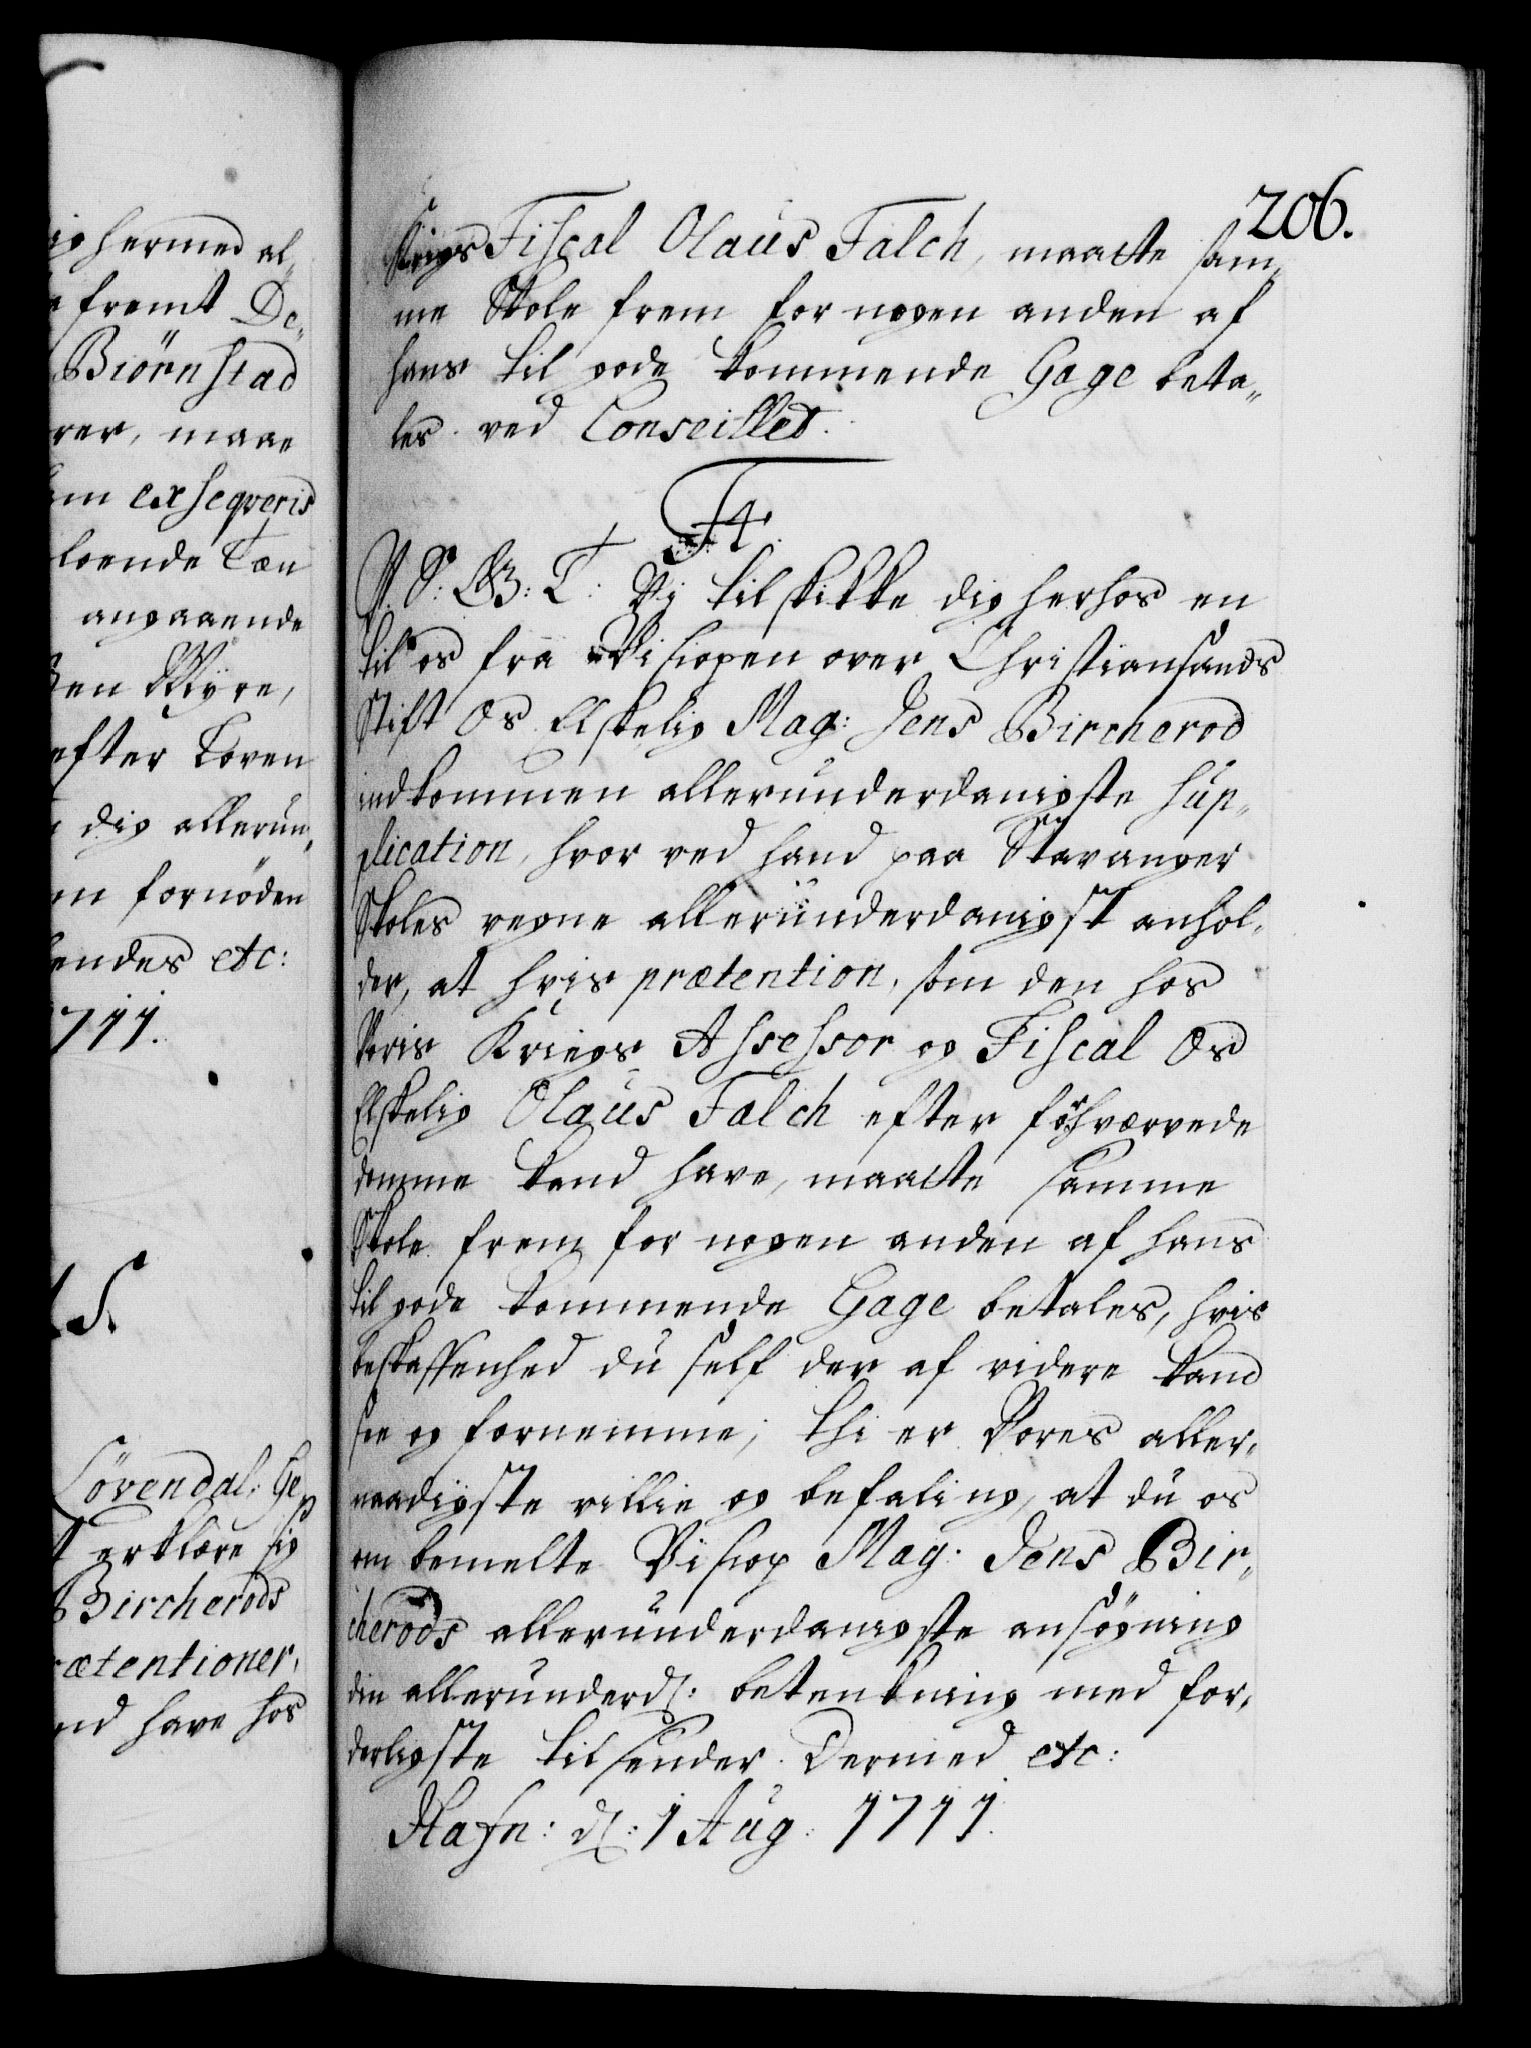 ig hermed al„
fremt De„
Biørnstad
rer, maae
em exseqveris
loende Tæn
angaaende
Sen Myre,
efter Loven
dig allerun„
en fornöden
endes etc:
1711.
Lövendal; Ge
t erklære sig
Bircherods
rætentioner,
nd have hos
206.
Krigs Fiscal Olaus Falch, maatte sam„
me Skole frem for nogen anden af
hans til gode kommende Gage beta„
les ved Conseillet.
F4.
W. S: G: T: Vi tilskikke dig herhos en
til os fra Bispen over Christiansands
Stift Os Elskelig Mag: Jens Bircherod
indkommen allerunderdanigste sup„
plication, hvor ved hand paa Stavanger
Skoles vegne allerunderdanigst anhol„
der, at hvis prætention, som den hos
Voris Krigs Assessor og Fiscal Os
Elskelig Olaus Falch efter forhværvede
domme kand have, maatte samme
Skole frem for nogen anden af hans
til gode kommende Gage betales, hvis
beskaffenhed du self der af videre kand
see og fornemme; thi er Vores aller„
naadigste villie og befaling, at du os
om bemelte Bisop Mag: Jens Bir„
cherods allerunderdanigste ansøgning
din allerunderd: betenkning med for„
derligste tilsender. Dermed etc:
Hafn: d: 1 Aug: 1711.